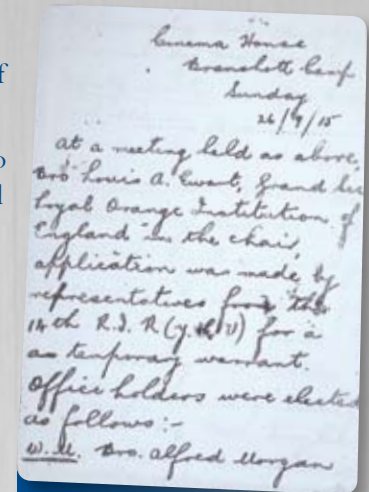 Cinema House
Bramshott Camp
Sunday
26/9/15
At a meeting held as above,
Bro Louis A. Ewart, Grand Sec
Loyal Orange Institution of
England in the chair,
application was made by
representatives from the
14th R.I.R (y. 
for a
as temporary warrant.
Office holders were elected
as follows:-
W.M. Bro. Alfred Morgan